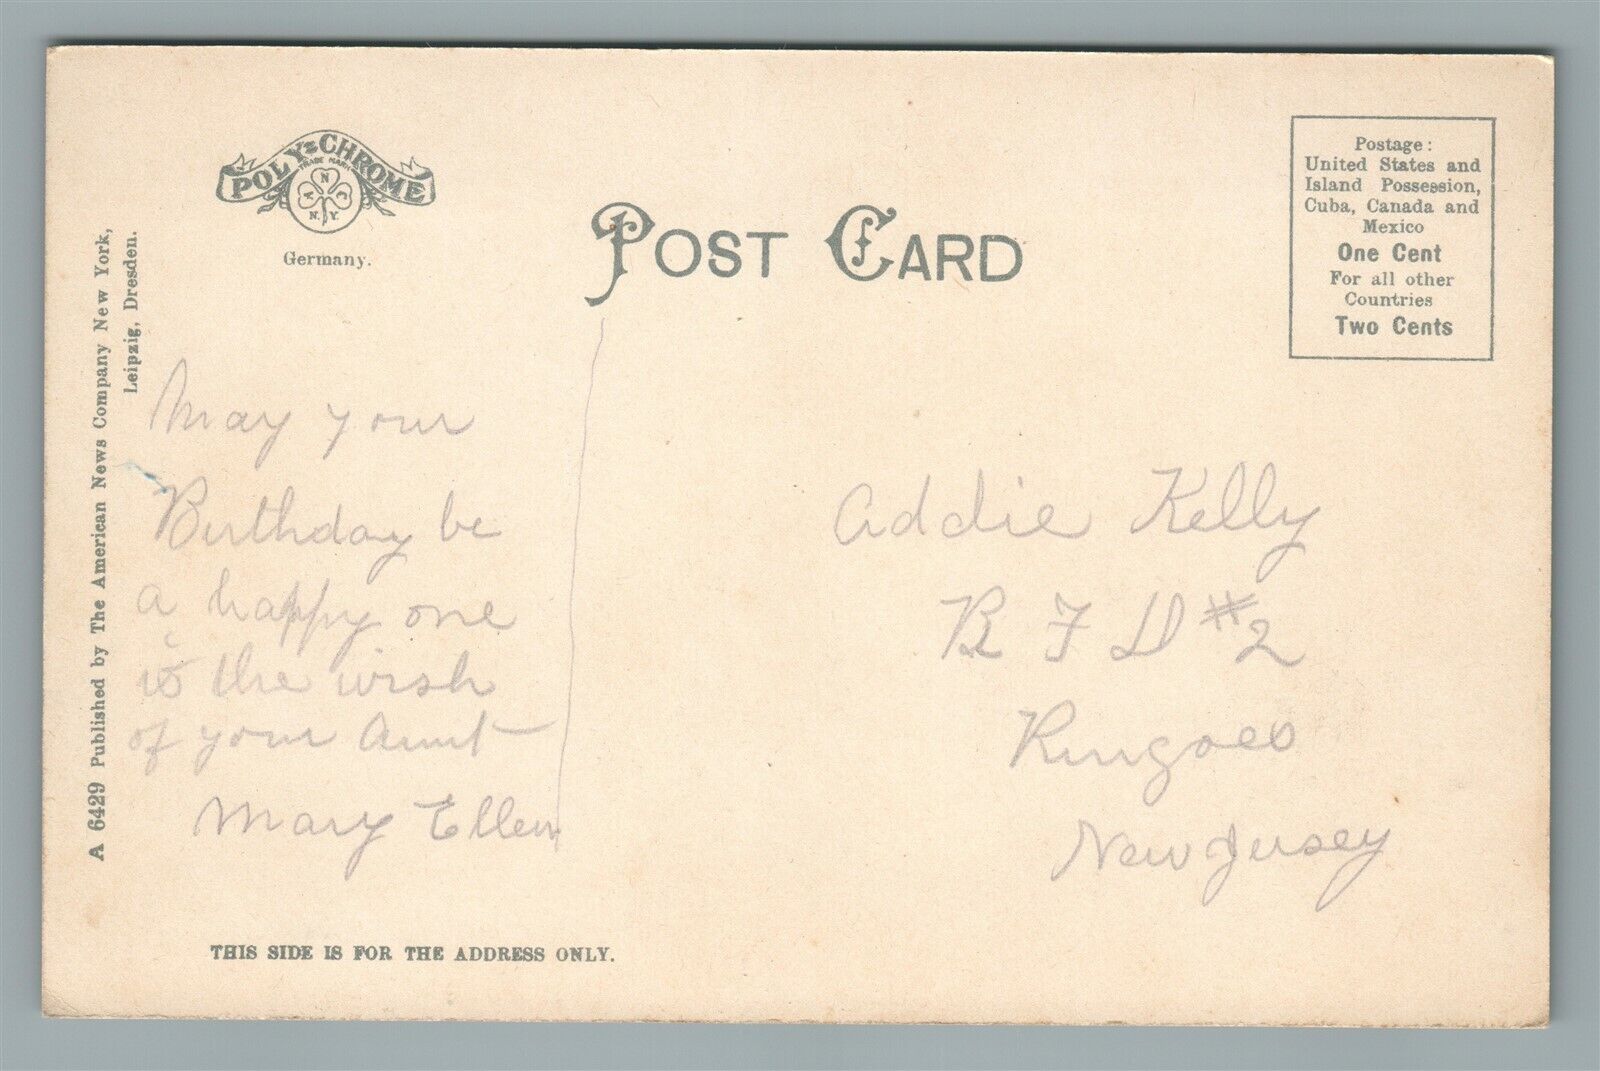 POLY-CHROME
TRADE MARK
A N C
N.Y.
Germany.
POST CARD
Postage:
United States and
Island Possession,
Cuba, Canada and
Mexico
One Cent
For all other
Countries
Two Cents
A 6429 Published by The American News Company New York,
Leipzig, Dresden.
May your
Birthday be
a happy one
is the wish
of your Aunt
Mary Ellen
Addie Kelly
R F D #2
Ringoes
New Jersey
THIS SIDE IS FOR THE ADDRESS ONLY.